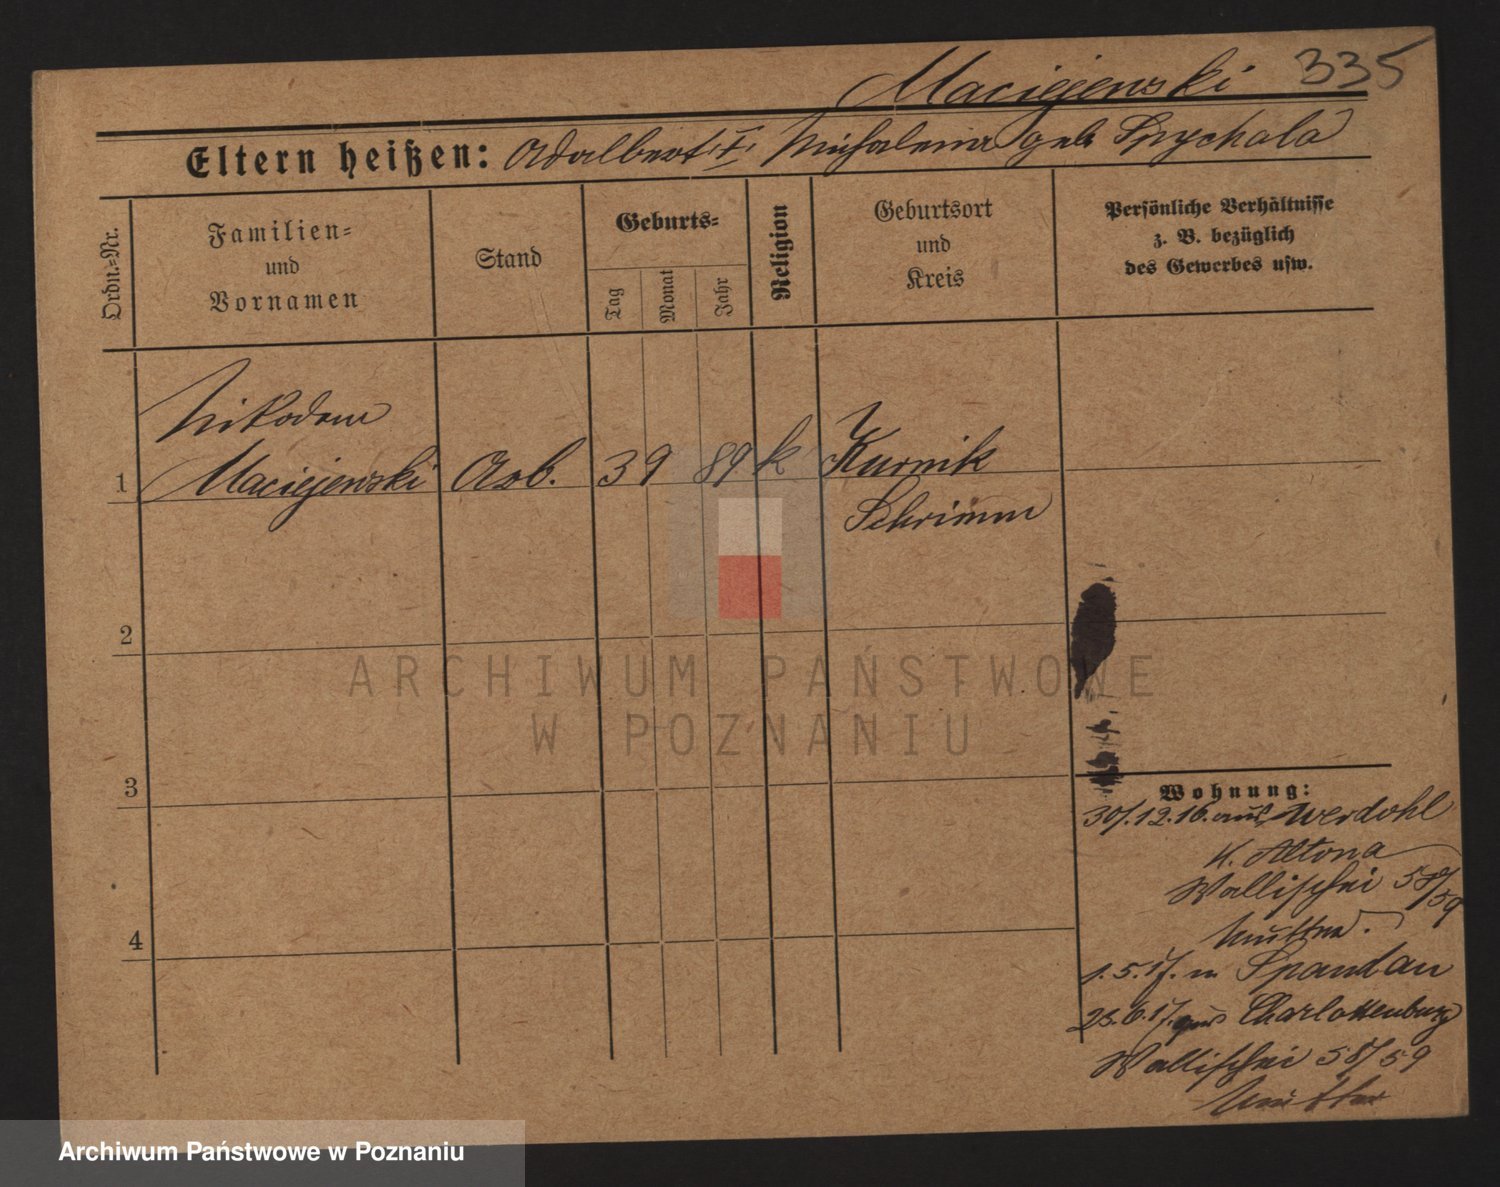 Maciejewski 335
Eltern heißen: Adalbert u. Michalina geb Spychala
Ordn.-Nr.
Familien-
und
Vornamen
Stand
Geburts-
Tag
Monat
Jahr
Religion
Geburtsort
und
Kreis
Persönliche Verhältnisse
z. B. bezüglich
des Gewerbes usw.
Nikodem
1 Maciejewski Arb. 3 9 89 k Kurnik
Schrimm
2
3
4
Wohnung:
30/.12.16. aus Werdohl
K. Altona
Wallischei 58/59
Mutter.
1.5.17. n Spandau
23.6.17. aus Charlottenburg
Wallischei 58/59
Mutter
ARCHIWUM PAŃSTWOWE
W POZNANIU
Archiwum Państwowe w Poznaniu